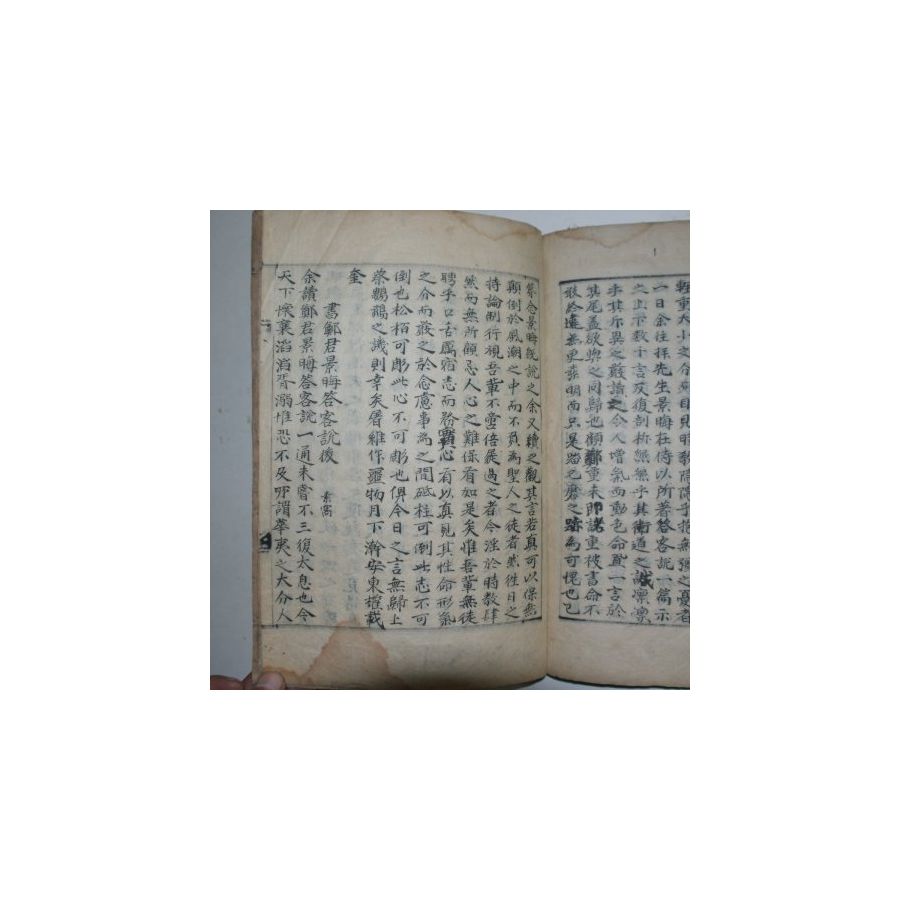 一日余往拜先生景晦在侍以所著答客説一篇示
之上示數十言反復剖析無無乎其衛道之誠凛凛
乎其亦異之啟讀之令人增氣而動色命置一言於
其尾孟欲與之同歸也顧鄭重未即諾重被書命不
敢終違無更素明而只是踏之磨之跡為可愧也已
築念景晦説之余又繪之觀其言若真可以保無
顛倒於風潮之中而不負為聖人之徒者然往日之
持論制行視吾輩不啻倍蓰過之者今淫於時教肆
然而無所顧忌人心之難保有如是矣惟吾輩無徒
騁乎口舌厲宿志而務實心有以真見其性命形氣
之分而致之於念慮事為之間砥柱可倒此志不可
倒也松栢可彫此心不可彫也俾今日之言無歸上
蔡鸚鵡之譏則幸矣屠維作噩物月下澣安東權載
奎
書鄭君景晦答客説後 素窩
余讀鄭君景晦答客説一通未嘗不三復太息也今
天下懷襄滔滔胥溺惟恐不及所謂華夷之大分人